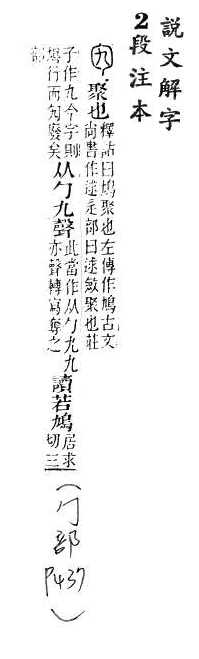 説文解字
2段注本
勼 聚也 釋詁曰鳩聚也左傳作鳩古文
尚書作逑辵部曰逑斂聚也莊
子作九今字則
鳩行而勼廢矣 从勹九聲 此當作从勹九九
亦聲轉寫奪之 讀若鳩 居求
切三
部
(勹部 P437)